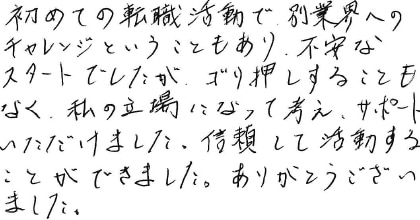 初めての転職活動で、別業界への
チャレンジということもあり、不安な
スタートでしたが、ゴリ押しすることも
なく、私の立場になって考え、サポート
いただけました。信頼して活動する
ことができました。ありがとうござい
ました。